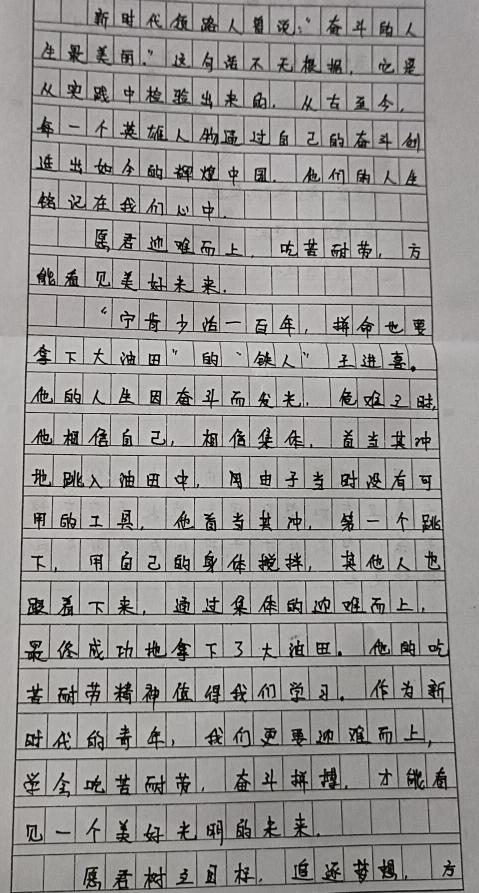 新时代领路人曾说：“奋斗的人
生最美丽。”这句话不无根据，它是
从实践中检验出来的，从古至今，
每一个英雄人物通过自己的奋斗创
造出如今的辉煌中国，他们的人生
铭记在我们心中。
愿君迎难而上，吃苦耐劳，方
能看见美好未来。
“宁肯少活一百年，拼命也要
拿下大油田”的“铁人”王进喜。
他的人生因奋斗而发光，危难之时，
他相信自己，相信集体，首当其冲
地跳入油田中，用由于当时没有可
用的工具，他首当其冲，第一个跳
下，用自己的身体搅拌，其他人也
跟着下来，通过集体的迎难而上，
最终成功地拿下了大油田。他的吃
苦耐劳精神值得我们学习。作为新
时代的青年，我们更要迎难而上，
学会吃苦耐劳，奋斗拼搏，才能看
见一个美好光明的未来。
愿君树立目标，追逐梦想，方